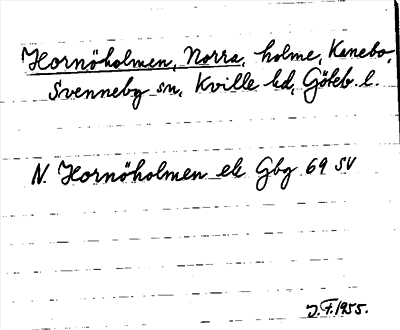 Hornöholmen, Norra, holme, Kanebo,
Svenneby sn, Kville hd, Göteb. l.
N. Hornöholmen ek Gbg 69 SV
J.F. 1955.